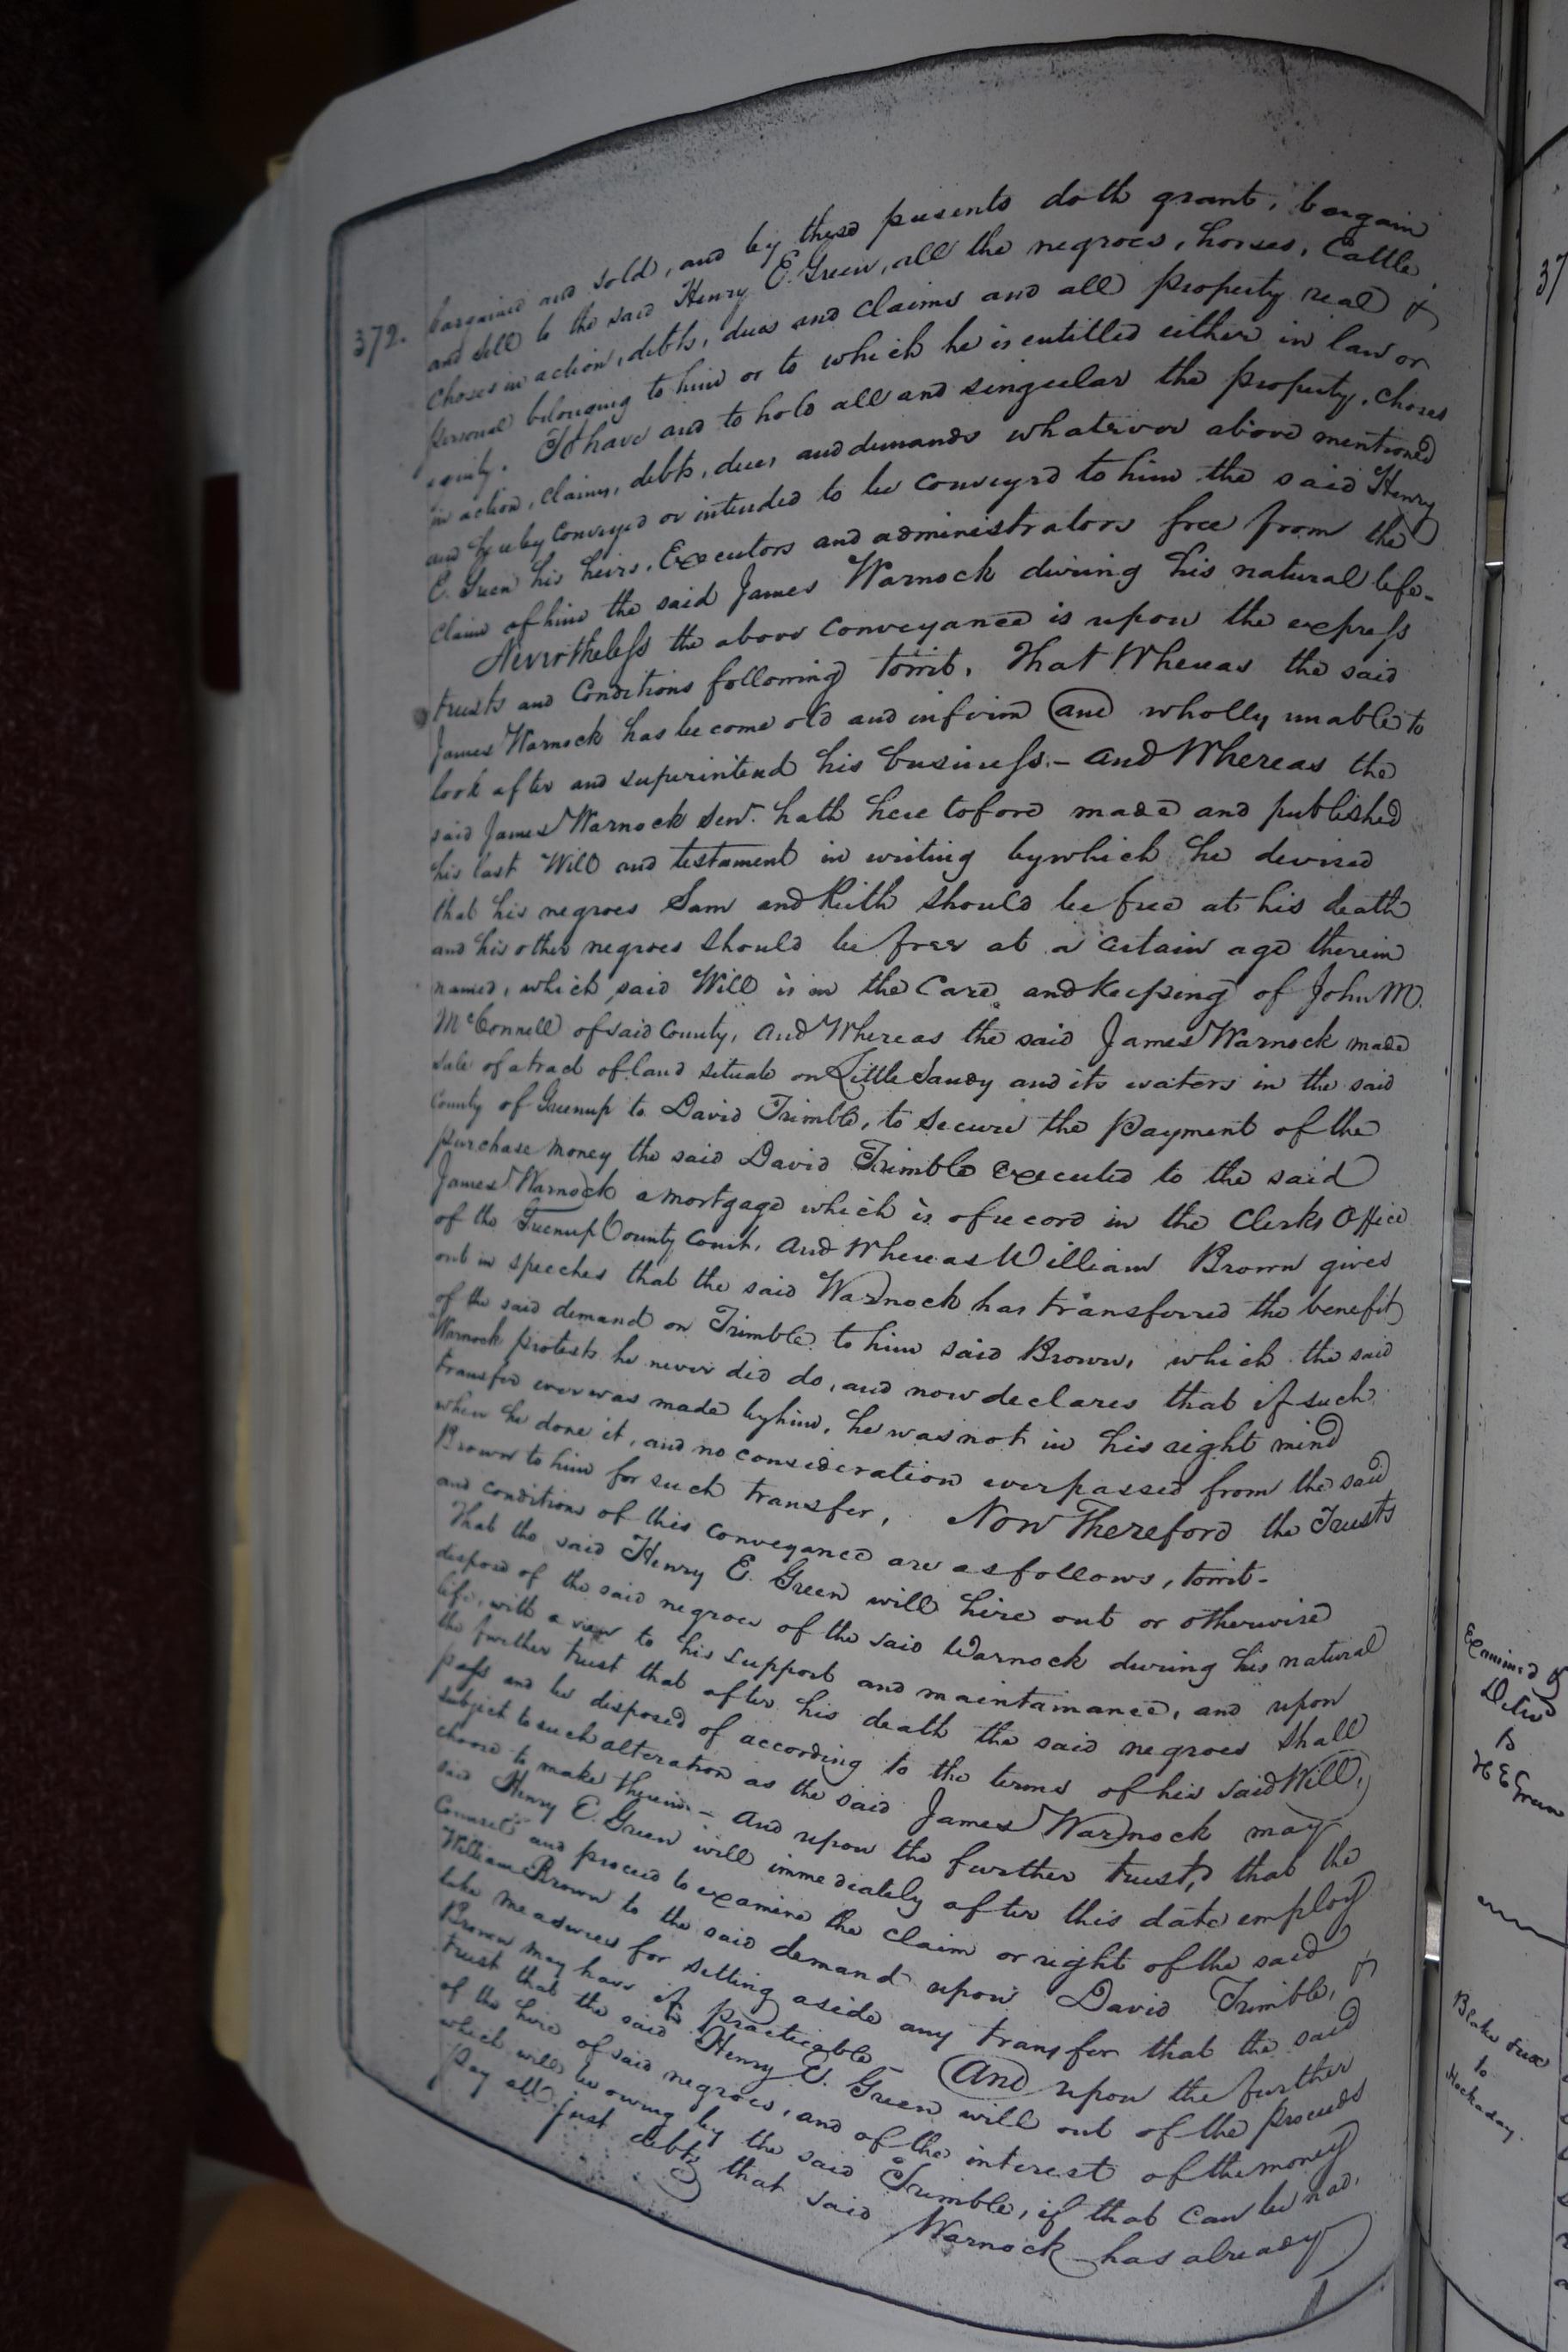 372.
bargained and sold, and by these presents doth grant, bargain
and sell to the said Henry E. Green, all the negroes, horses, Cattle,
choses in action, debts, dues and claims and all property real &
personal belonging to him or to which he is entitled either in law or
equity. To have and to hold all and singular the property, choses
in action, claims, debts, dues and demands whatever above mentioned
and hereby conveyed or intended to be conveyed to him the said Henry
E. Green his heirs, Executors and administrators free from the
claim of him the said James Warnock during his natural life-
Nevertheless the above conveyance is upon the express
trusts and Conditions following towit, That Whereas the said
James Warnock has become old and infirm and wholly unable to
look after and superintend his business.- and Whereas the
said James Warnock Senr. hath heretofore made and published
his last Will and testament in writing by which he devised
that his negroes Sam and Ruth should be free at his death
and his other negroes should be free at a certain age therein
named, which said Will is in the Care and keeping of John M.
McConnell of said County, and Whereas the said James Warnock made
sale of a tract of land situate on Little Sandy and its waters in the said
County of Greenup to David Trimble, to secure the Payment of the
purchase money the said David Trimble executed to the said
James Warnock a mortgage which is of record in the Clerks Office
of the Greenup County Court. and Whereas William Brown gives
out in speeches that the said Warnock has transferred the benefit
of the said demand on Trimble to him said Brown, which the said
Warnock protests he never did do, and now declares that if such
transfer ever was made by him, he was not in his right mind
when he done it, and no consideration ever passed from the said
Brown to him for such transfer. Now Therefore the Trusts
and conditions of this conveyance are as follows, towit-
That the said Henry E. Green will hire out or otherwise
dispose of the said negroes of the said Warnock during his natural
life, with a view to his support and maintainance, and upon
the further trust that after his death the said negroes shall
pass and be disposed of according to the terms of his said Will,
subject to such alteration as the said James Warnock may
choose to make therein - and upon the further trust, that the
said Henry E. Green will immediately after this date employ
Counsel and proceed to examine the claim or right of the said
William Brown to the said demand upon David Trimble, &
take measures for setting aside any transfer that the said
Brown may have if practicable - And upon the further
trust that the said Henry E. Green will out of the proceeds
of the hire of said negroes, and of the interest of the money
which will be owing by the said Trimble, if that can be had,
pay all just debts that said Warnock has already
37
Examined &
Delivd
to
H E Green
to
Hockaday